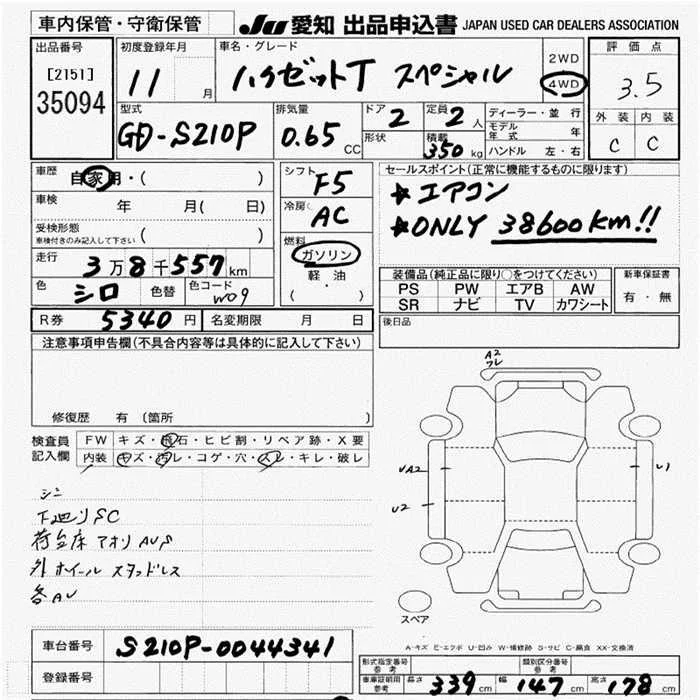 車内保管・守衛保管 JU 愛知 出品申込書 JAPAN USED CAR DEALERS ASSOCIATION
出品番号 [2151] 35094
初度登録年月 11 月
車名・グレード ハイゼットT スペシャル
2WD 4WD
評価点 3.5
外装 内装
C C
型式 GD-S210P
排気量 0.65 CC
ドア 2 定員 2 人
形状 積載 350 kg
ディーラー・並行
モデル年式 年
ハンドル 左・右
車歴 自家用・( )
車検 年 月( 日)
受検形態 ( )
車検付きのみ記入して下さい
走行 3万8千557km
色 シロ 色替 色コード W09
シフト F5
冷房 AC
燃料 ガソリン
軽油
( ・ )
セールスポイント(正常に機能するものに限ります)
★エアコン
★ONLY 38600km!!
装備品(純正品に限り○をつけてください) 新車保証書
PS PW エアB AW 有・無
SR ナビ TV カワシート
R券 5340円 名変期限 月 日
後日品
注意事項申告欄(不具合内容等は具体的に記入して下さい)
修復歴 有(箇所 )
検査員記入欄
FW キズ・飛石・ヒビ割・リペア跡・X要
内装 キズ・汚レ・コゲ・穴・スレ・キレ・破レ
下廻りSC
荷台床 アオリ AUS
外ホイール スタッドレス
各AU
A2
UA2
U2
U1
スペア
A-キズ E-エクボ U-凹み W-補修跡 S-サビ C-腐食 XX-交換済
車台番号 S210P-0044341
登録番号
形式指定番号 参考 類別区分番号 参考
車庫証明用 参考 長さ 339cm 幅 147cm 高さ 178cm